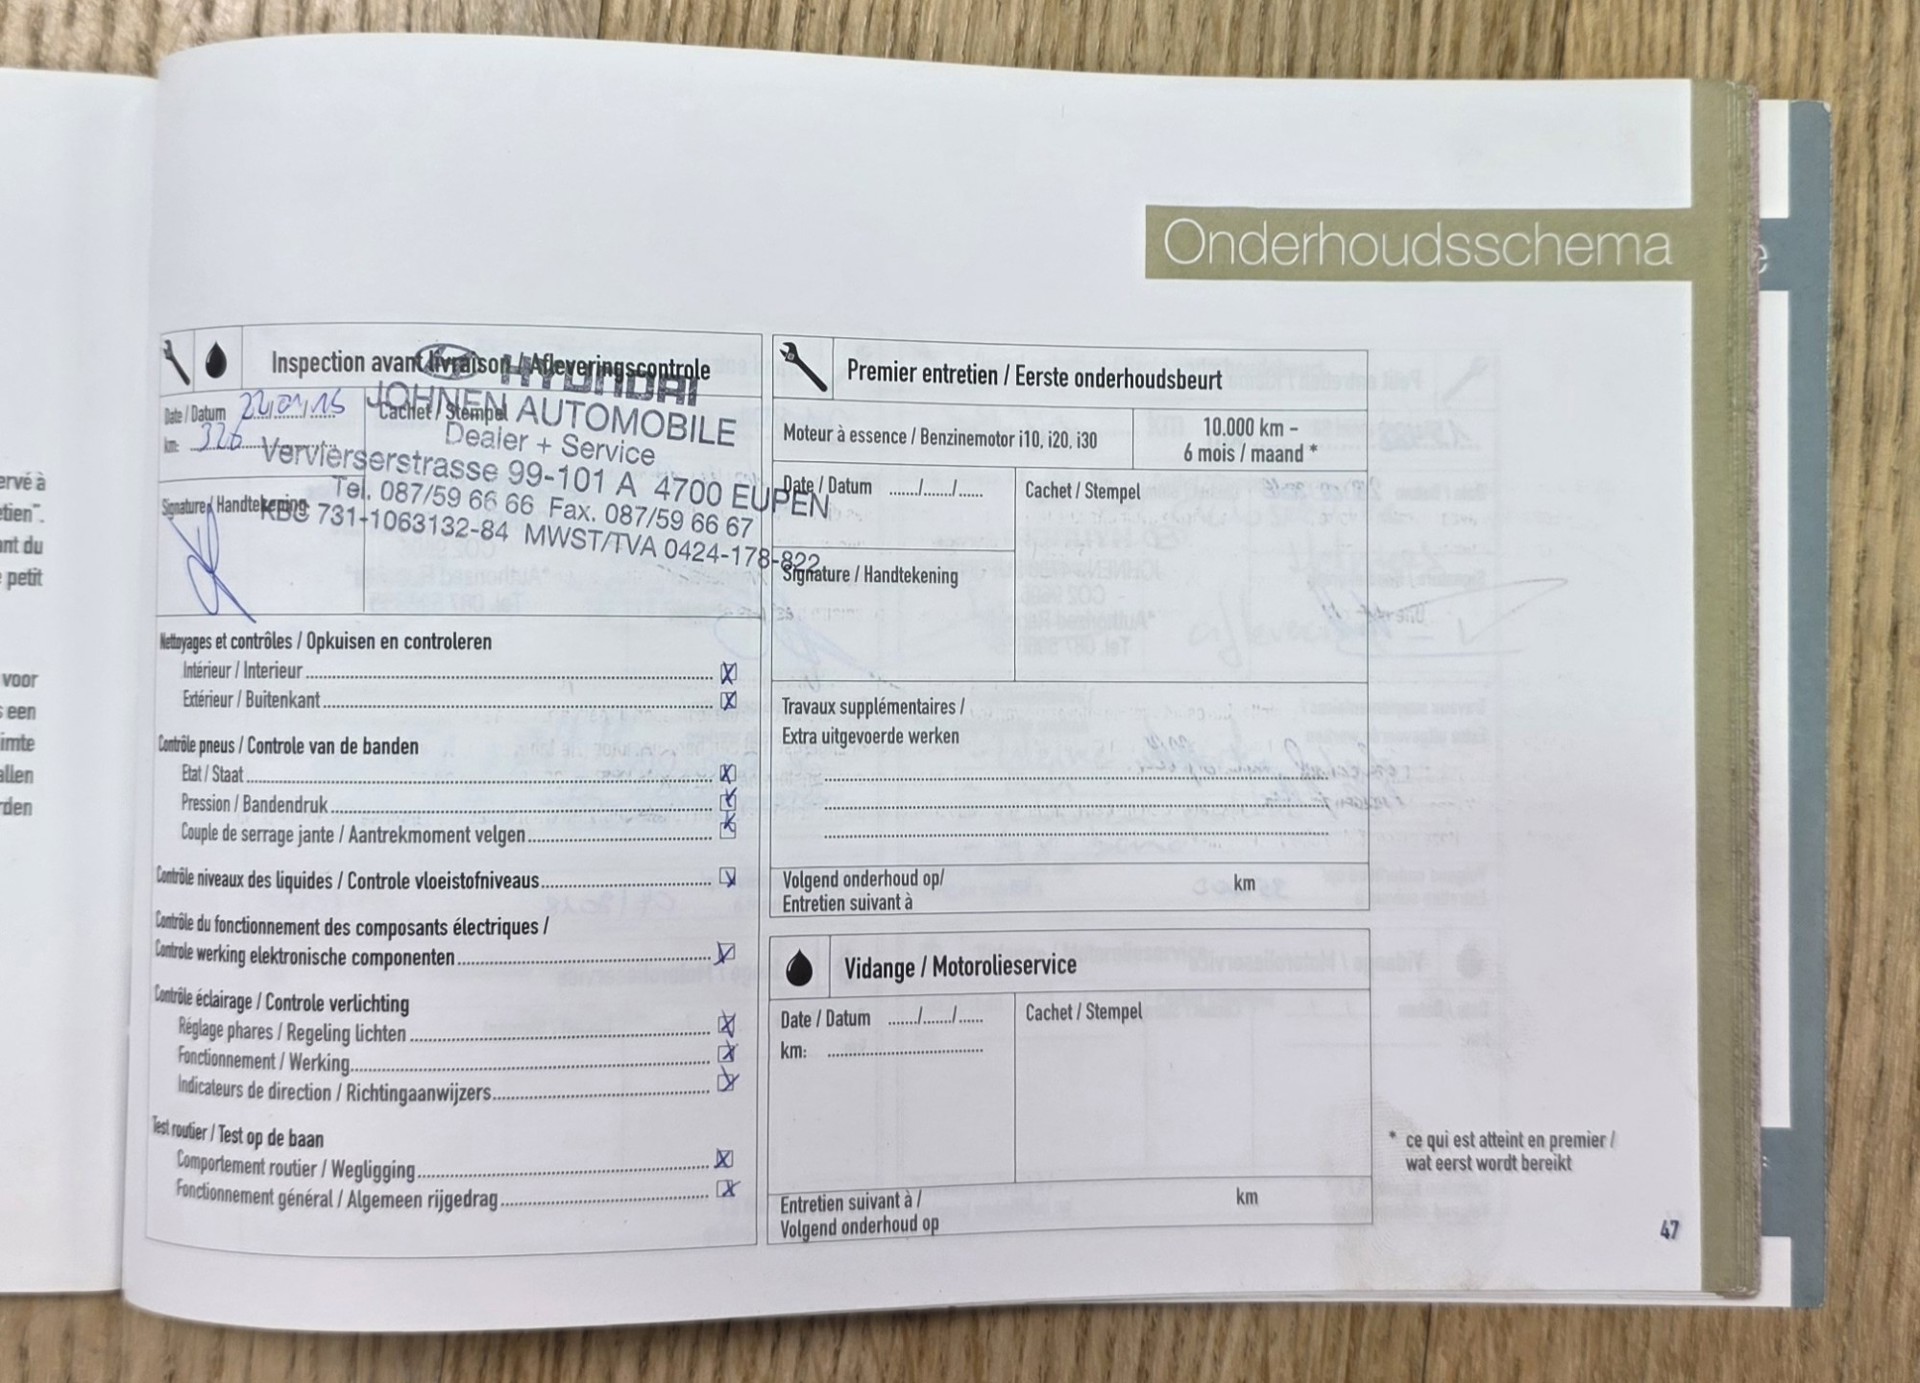 Onderhoudsschema
ervé à
etien".
ant du
petit
voor
s een
imte
allen
rden
Inspection avant livraison / Afleveringscontrole
Date / Datum 22/01/15
km: 326
Cachet / Stempel
Signature / Handtekening
HYUNDAI
JOHNEN AUTOMOBILE
Dealer + Service
Vervierserstrasse 99-101 A 4700 EUPEN
Tel. 087/59 66 66 Fax. 087/59 66 67
KBC 731-1063132-84 MWST/TVA 0424-178-822
Nettoyages et contrôles / Opkuisen en controleren
Intérieur / Interieur
Extérieur / Buitenkant
Contrôle pneus / Controle van de banden
Etat / Staat
Pression / Bandendruk
Couple de serrage jante / Aantrekmoment velgen
Contrôle niveaux des liquides / Controle vloeistofniveaus
Contrôle du fonctionnement des composants électriques /
Controle werking elektronische componenten
Contrôle éclairage / Controle verlichting
Réglage phares / Regeling lichten
Fonctionnement / Werking
Indicateurs de direction / Richtingaanwijzers
Test routier / Test op de baan
Comportement routier / Wegligging
Fonctionnement général / Algemeen rijgedrag
Premier entretien / Eerste onderhoudsbeurt
Moteur à essence / Benzinemotor i10, i20, i30
10.000 km -
6 mois / maand *
Date / Datum ......./......./......
Cachet / Stempel
Signature / Handtekening
Travaux supplémentaires /
Extra uitgevoerde werken
Volgend onderhoud op/
Entretien suivant à
km
Vidange / Motorolieservice
Date / Datum ......./......./......
km:
Cachet / Stempel
Entretien suivant à /
Volgend onderhoud op
km
* ce qui est atteint en premier /
wat eerst wordt bereikt
47